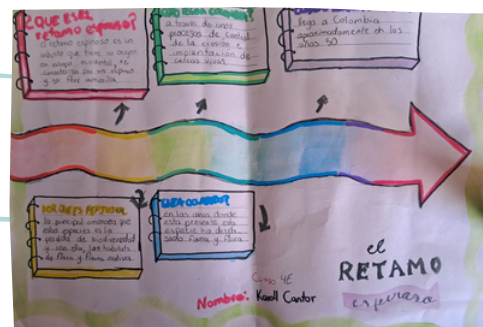 ¿QUE ES EL
retamo espinoso?
El retamo espinoso es un
arbusto que tiene su origen
en europa occidental, se
caracteriza por ser espinoso
y su flor amarilla
a través de unos
procesos de control
de la erosión e
implantación de
cercas vivas
llega a Colombia
aproximadamente en los
años 50
la principal amenaza que
esta especies es la
perdida de biodiversidad
y con ella, los habitats
de flora y fauna nativa.
en las areas donde
esta presente esta
especie ha
fauna y flora
Curso 4E
Nombre: Karoll Cantor
el
RETAMO
espinoso